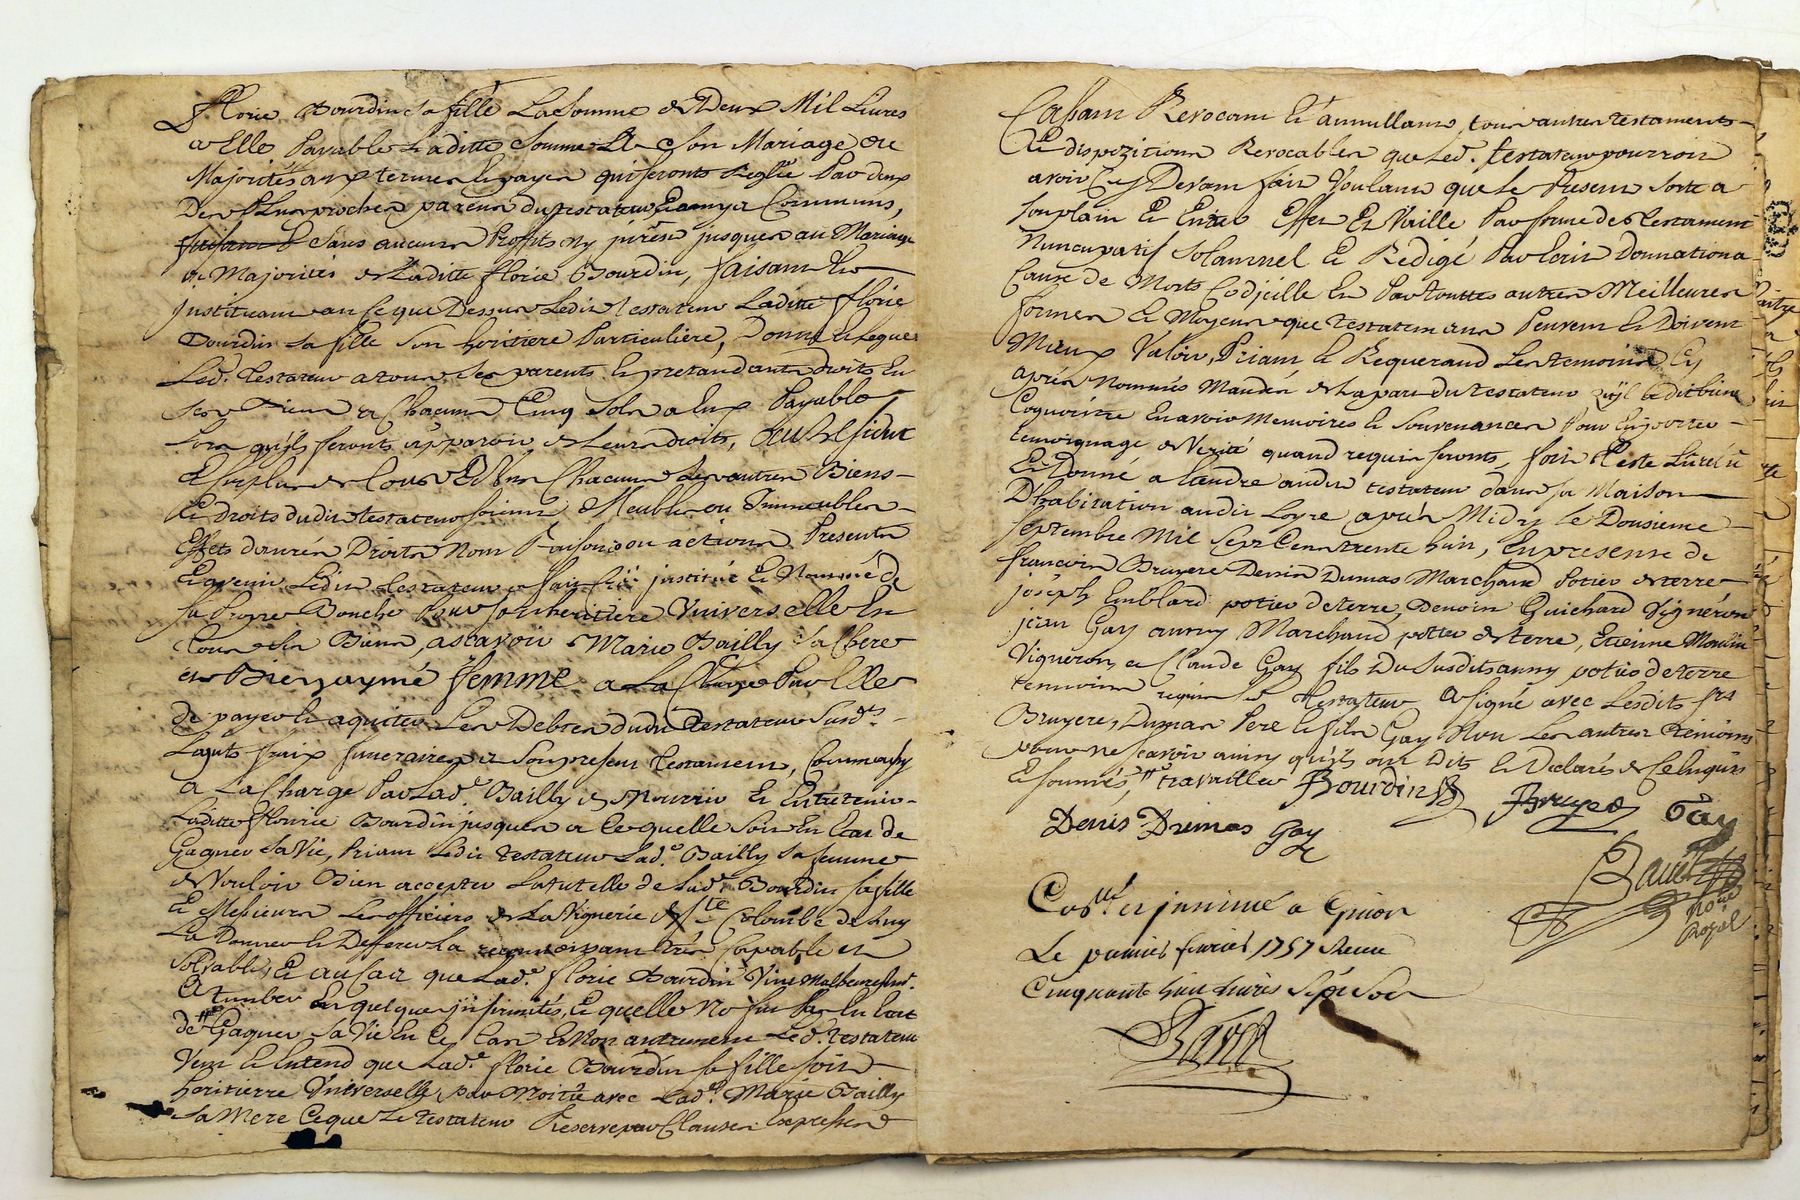 Florie Bourdin sa fille La Somme de Deux Mil Livres
a Elle Payable Laditte Somme A Son Mariage ou
Majorités aux termes et payes qui seronts Reglée Par deux
Des Plus proches parens du testateur Et amys Communs,
Sans aucuns Proffits ny jusques au Mariage
ou Majorités de Laditte florie Bourdin, faisam
Instituam en Ce que Dessus Ledit testateur Laditte florie
Bourdin Sa fille Son heritiere Particuliere, Donne et Legue
Led. testateur a tous Ses parents Et pretandants droits En
Ses Biens a Chacuns Cinq Sols a Eux Payable
Lors qu'ils feronts apparoir de Leurs droits, Au Residue
Et surplus de tous Et Uns Chacuns Ses autres Biens
Et droits dudit testateur soient Meubles ou Immeubles
Effets dorures Droits Nom Raisons ou actions Presents
Et avenir Ledit testateur a fait institué Et Nommé de
Sa Propre Bouche Pour Son heritiere Universelle En
tous Ses Biens, ascavoir Marie Bailly Sa Chere
et Bienaymé femme a La Charge Par Elle
de payer Et aquiter Les Debtes dudit testateur Susd.
Legats fraix funeraires et Son present testament, Comme aussy
A La Charge Par Lad.e Bailly de Nourrir Et Entretenir
Laditte florie Bourdin jusques a Ce quelle Soit En Etat de
Gagner Sa Vie, Priam Ledit testateur Lad.e Bailly Sa femme
de Vouloir Bien accepter La tutelle de Lad.e Bourdin Sa fille
Et Messieurs Les officiers de La Viguerie de Ste Colombe de Luy
La Donner Et Defferer La reconnoissant tres Capable et
Solvable, Et au Cas que Lad.e florie Bourdin Vint Malheureusem.t
A tumber En quelques infirmités, Et quelle Ne fut Pas En Etat
de Gagner Sa Vie En Ce Cas Et Non autrement Led. testateur
Veut Et Entend que Lad.e florie Bourdin Sa fille Soit
heritierre Universelle par Moitié avec Lad.e Marie Bailly
Sa Mere Ce que Le testateur Reserve par Clauses Expresses
Cassam Revocam Et annullam tous autres testaments
Et dispozitions Revocables que Led. testateur pourroit
avoir Cy Devam fait Voulam que Le Present Sorte a
Son plain Et Entier Effet Et Vaille Par forme de testament
Nuncupatif Solamnel Et Redigé Par Ecrit Donnation a
Cause de Morts Codicille Et Par touttes autres Meilleures
formes Et Moyens que testatem ens Peuvent Et Doivent
Mieux Valoir, Priam Et Requerand Les temoins Cy
aprés Nommés Mandés de La part du testateur
En avoir Memoires Et Souvenances Pour En porter
temoignage de Verité quand requis seronts, fait
Et Donné a audit testateur dans Sa Maison
D'habitation audit Loyre aprés Midy Le Dousieme
septembre Mil Sept Cens trente huit, En presense de
francois Bruyere Denis Dumas Marchand Potier de terre
joseph Emblard potier de terre, Benoin Guichard Vigneron
jean Gay aussy Marchand potier de terre, Etienne Moulin
Vigneron et Claude Gay fils du Susdits aussy potier de terre
temoins requis Led. testateur A signé avec Lesdits srs
Bruyere, Dumas Pere et fils Gay Non Les autres temoins
pour ne scavoir ainsy qu'ils ont Dit Et Declarés de Ce Enquis
Et Sommés, travailler Bourdin Bruyere Gay
Denis Dumas Gay
No.re
Royal
Con.llé et insinué a Givor
Le premier fevrier 1757 Receu
Cinquante huit livres Sept Sols